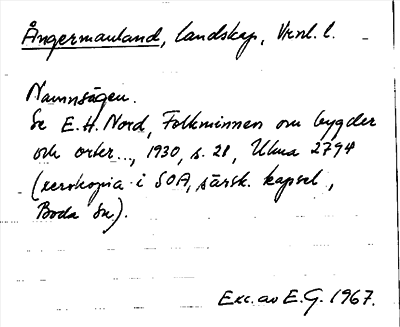 Ångermanland, landskap, Vrnl. l.
Namnsägen.
Se E.H. Nord, Folkminnen om bygder
och orter..., 1930, s. 28, Ulma 2794
(xerokopia i SOA, särsk. kapsel,
Boda sn).
Exc. av E.G. 1967.